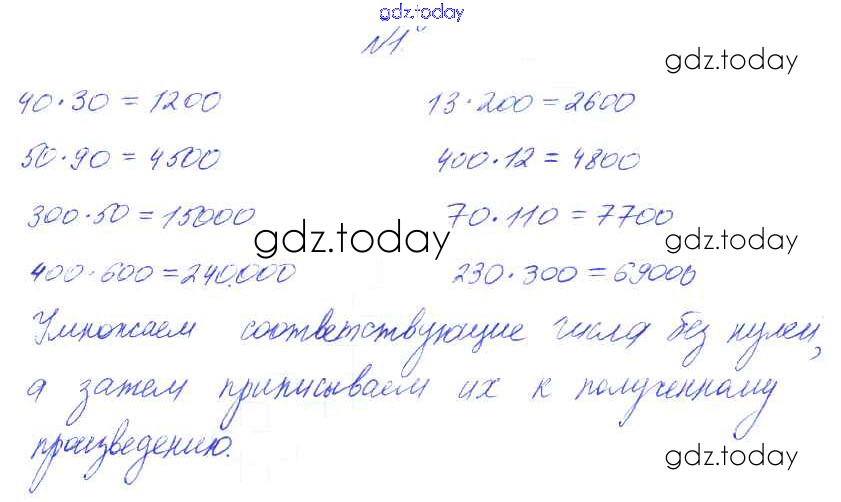 gdz.today
№1.
gdz.today
40·30=1200 13·200=2600
50·90=4500 400·12=4800
300·50=15000 70·110=7700
gdz.today gdz.today
400·600=240.000 230·300=69000
Умножаем соответствующие числа без нулей,
а затем приписываем их к полученному
произведению.
gdz.today